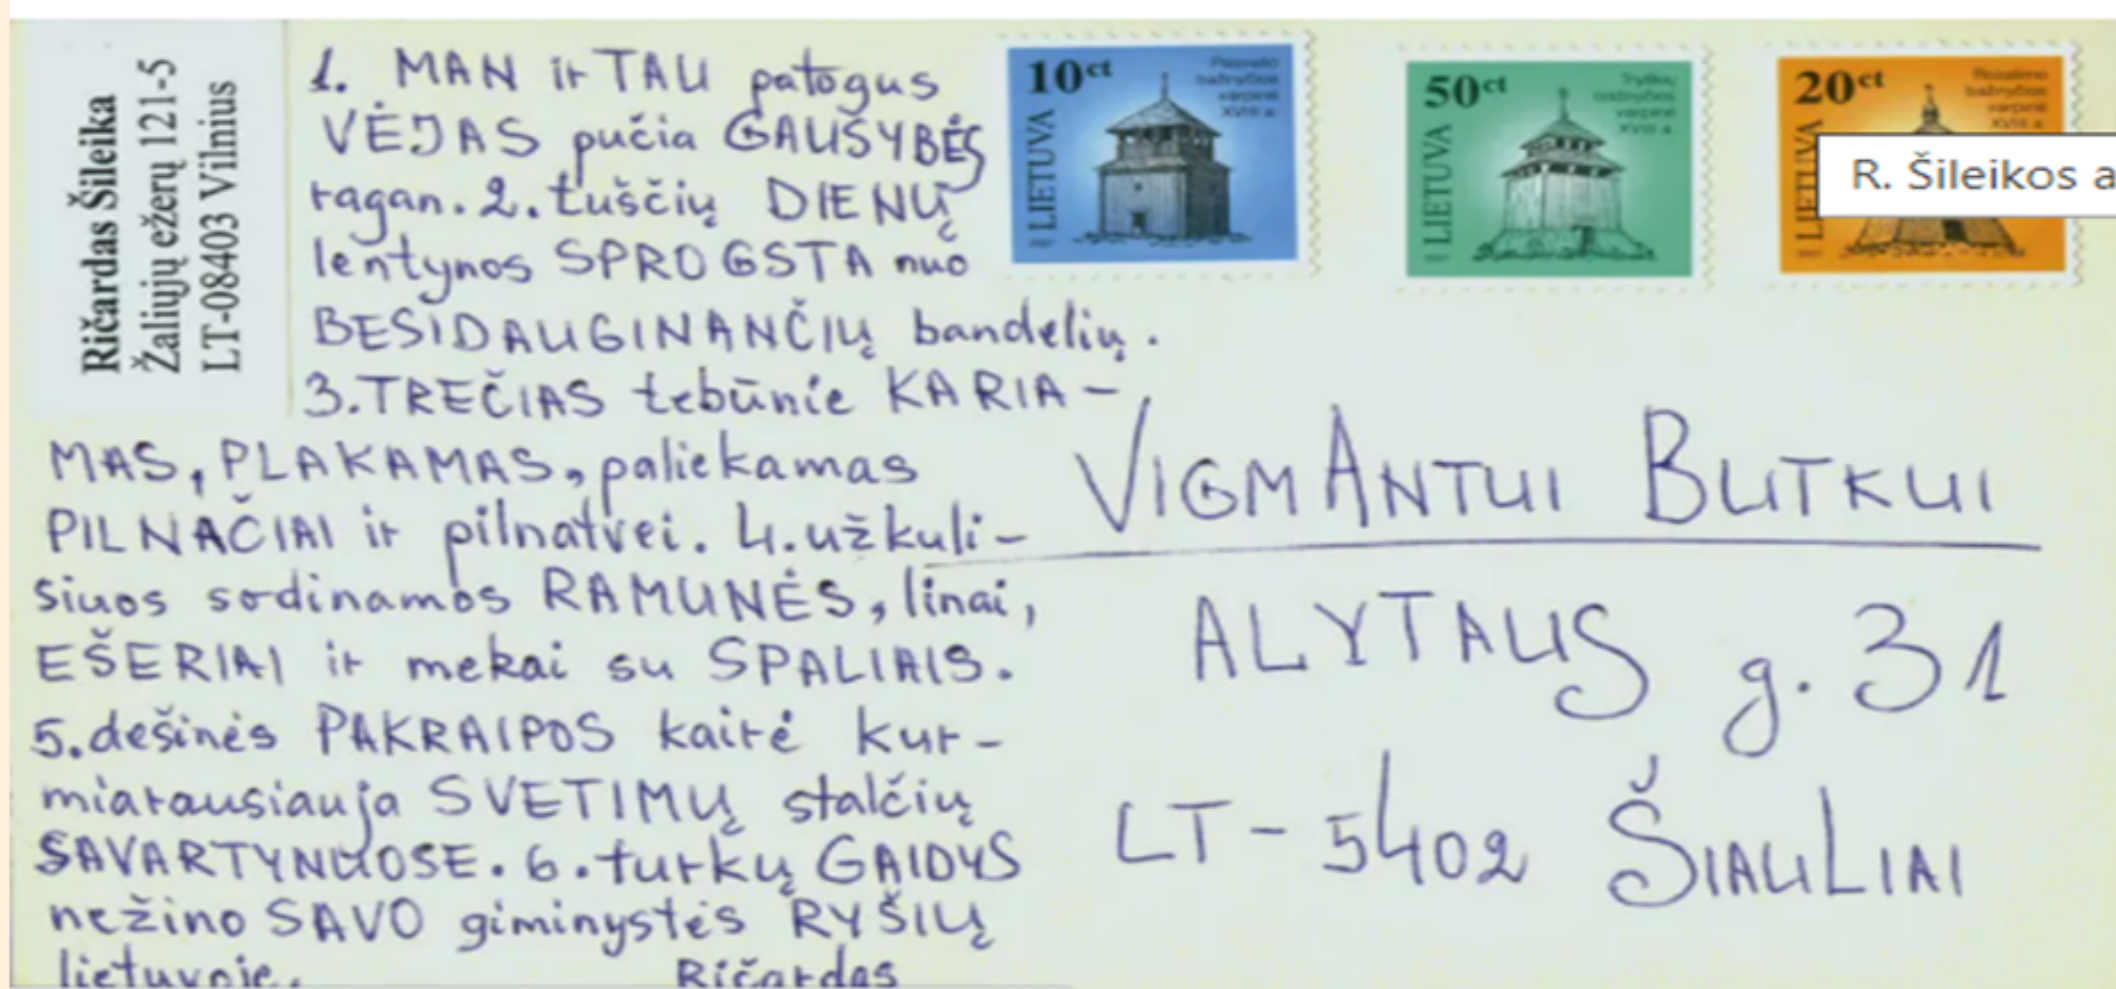 Ričardas Šileika
Žaliųjų ežerų 121-5
LT-08403 Vilnius
1. MAN ir TAU patogus
VĖJAS pučia GAUSYBĖS
ragan. 2. tuščių DIENŲ
lentynos SPROGSTA nuo
BESIDAUGINANČIŲ bandelių.
3. TREČIAS tebūnie KARIA-
MAS, PLAKAMAS, paliekamas
PILNAČIAI ir pilnatvei. 4. užkuli-
siuos sodinamos RAMUNĖS, linai,
EŠERIAI ir mekai su SPALIAIS.
5. dešinės PAKRAIPOS kairė kur-
miarausiauja SVETIMŲ stalčių
SAVARTYNUOSE. 6. turkų GAIDYS
nežino SAVO giminystės RYŠIŲ
lietuvoje. Ričardas
10ct
LIETUVA
Pasvalio
bažnyčios
varpinė
XVIII a.
50ct
LIETUVA
Tryškių
bažnyčios
varpinė
XVIII a.
20ct
LIETUVA
Rozalimo
bažnyčios
varpinė
XVIII a.
R. Šileikos a
VIGMANTUI BUTKUI
ALYTAUS g. 31
LT-5402 ŠIAULIAI